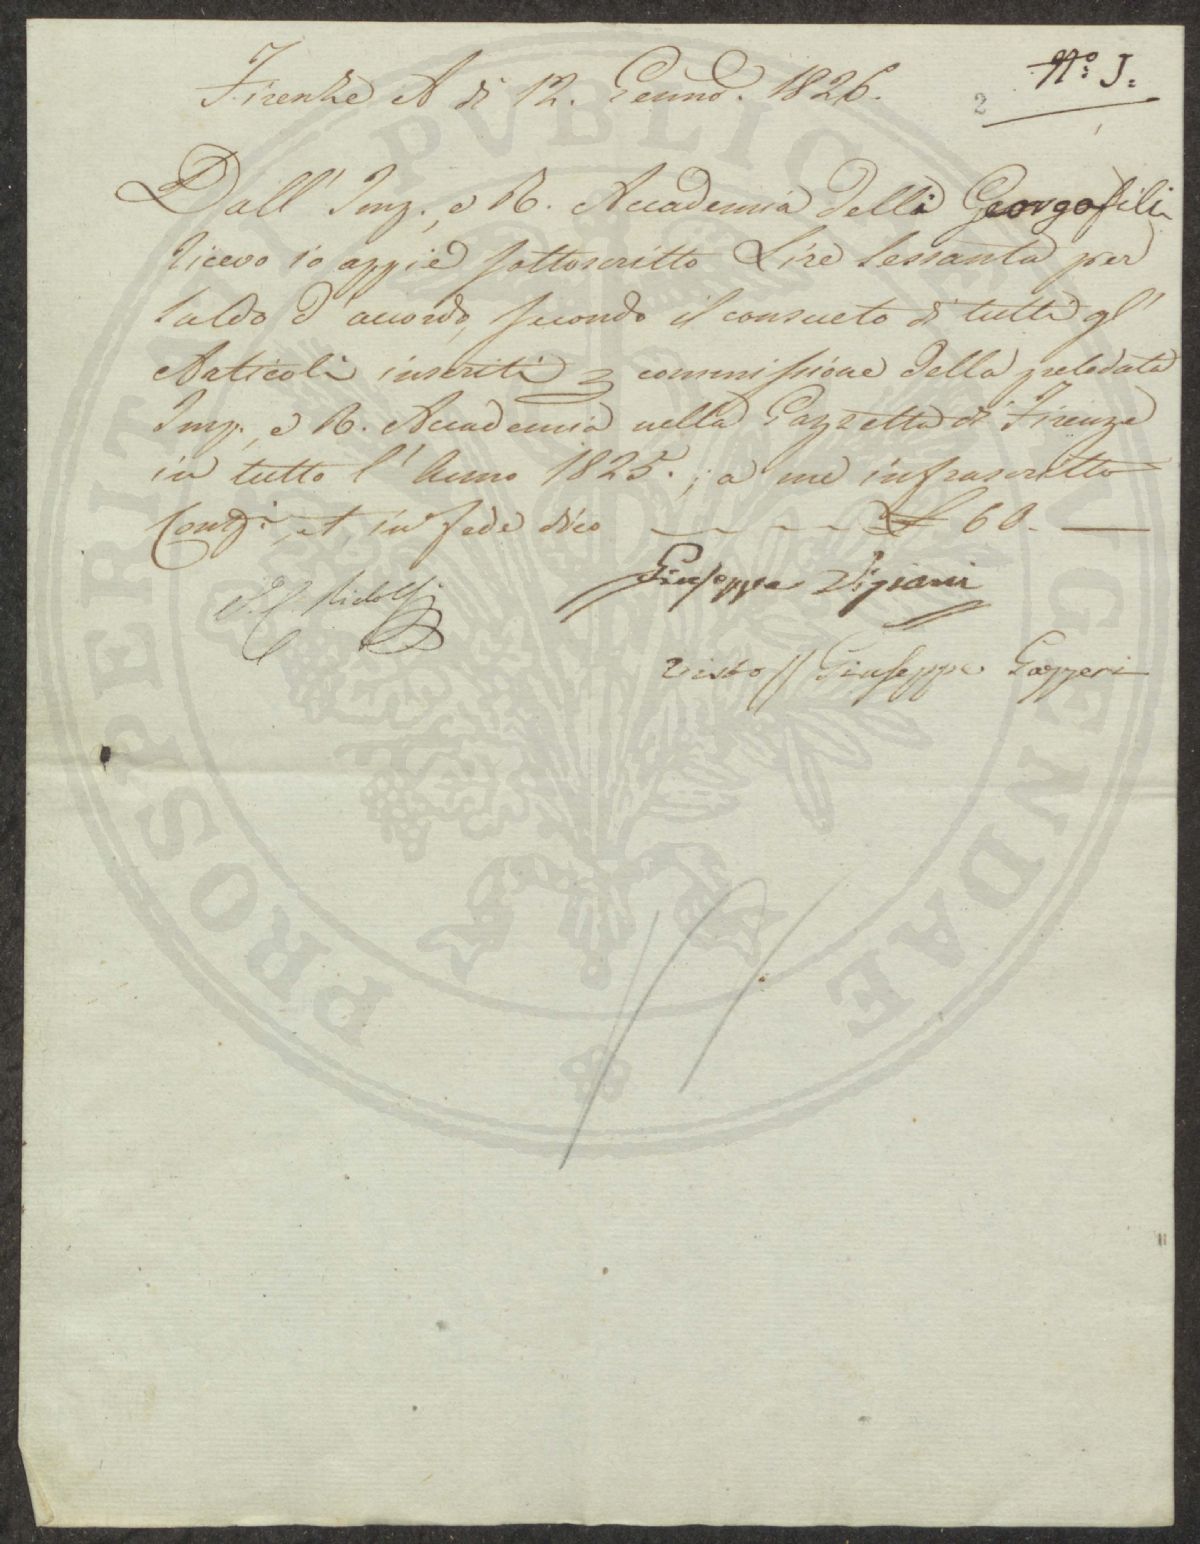 N.º I.
2
Firenze A dì 12. Genno. 1826.
Dall' Imp., e R. Accademia delli Georgofili
ricevo io appiè sottoscritto Lire sessanta per
saldo d'accordo, secondo il consueto di tutti gl'
Articoli inseriti commissione della prelodata
Imp., e R. Accademia nella Gazzetta di Firenze
in tutto l'Anno 1825.; a me infrascritto
Conti, et in fede dico £ 60.
Ridolfi
Giuseppe
Visto // Giuseppe Gazzeri
PROSPERITATI PVBLICAE AVGENDAE